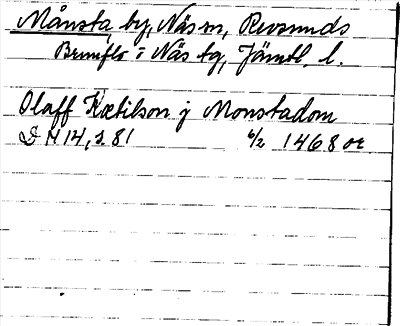 Månsta, by, Näs sn, Revsunds
Brunflo o Näs tg, Jämtl. l.
Olaff Kætilson j Monstadom
DN 14, s. 81 6/2 1468 or.